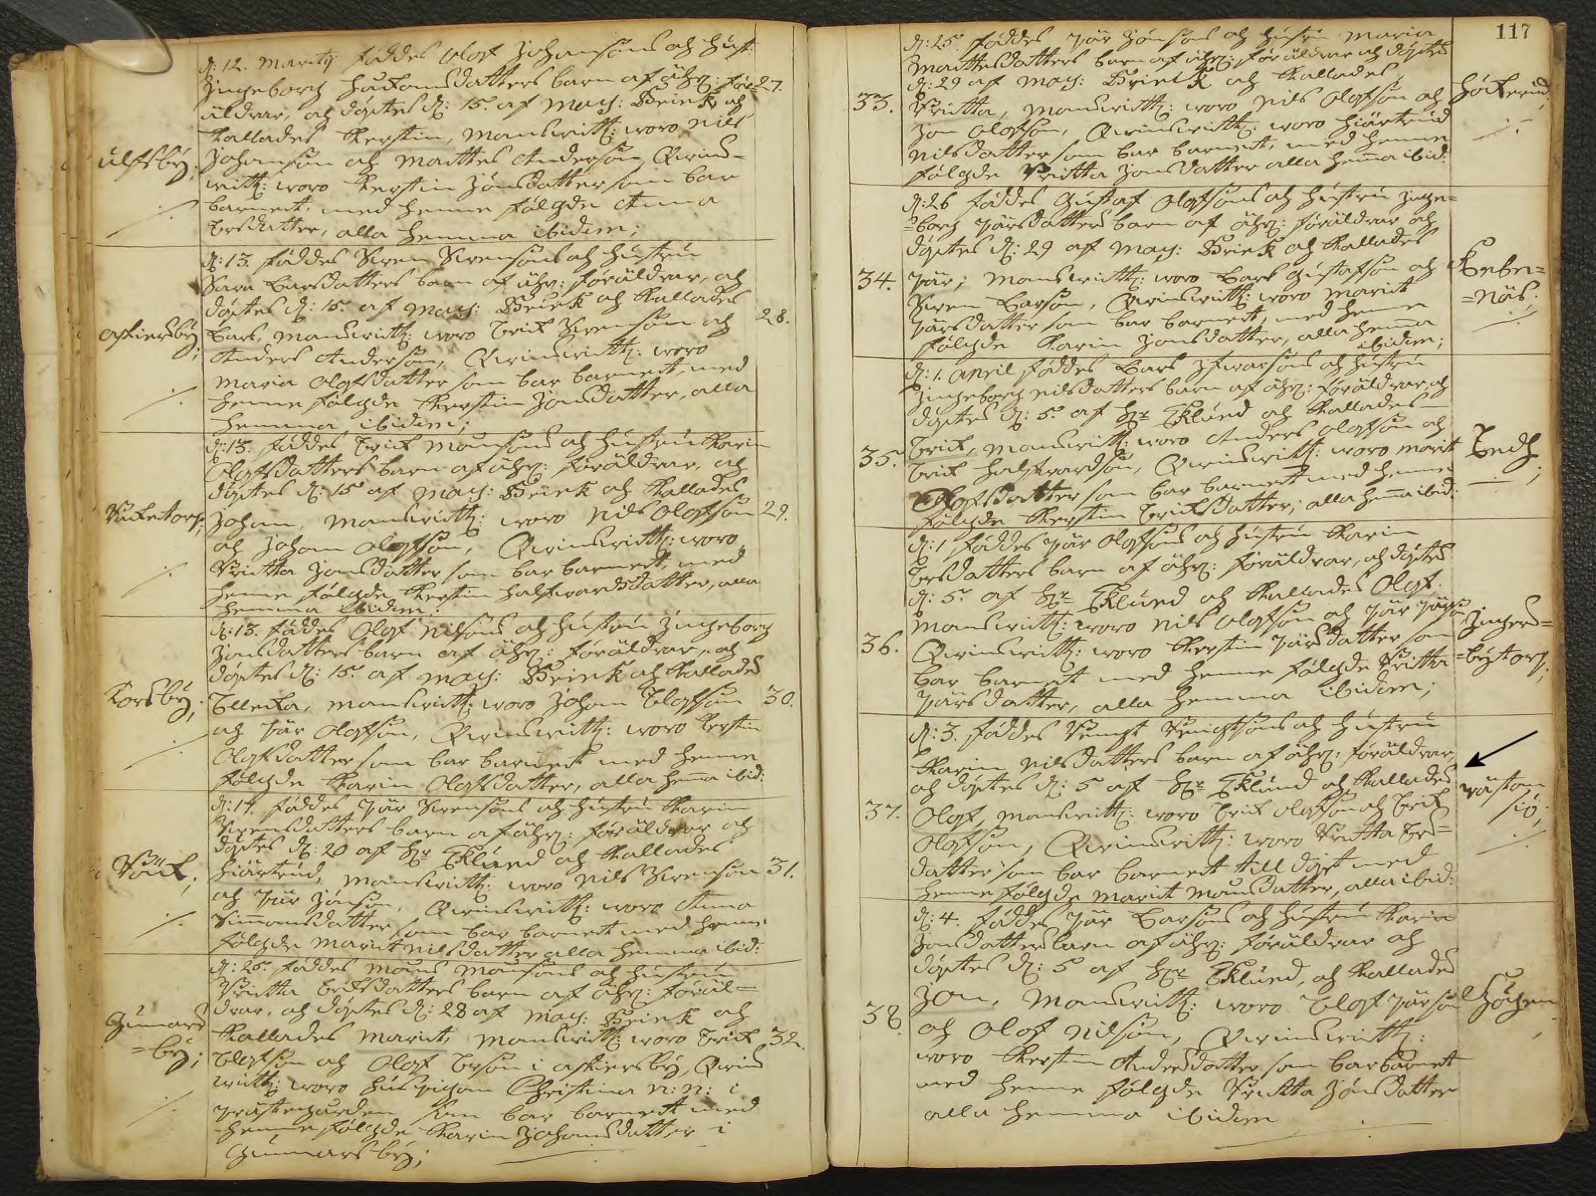 d: 12. Martij föddes Olof Johansons och hust:
Ingeborg Håkansdatters barn af ähr: för- 27.
äldrar, och döptes d: 15. af Mag: Brieck och
Kallades Kerstin, Manswittn: woro Nils
Ulfsby; Johanson och Mattes Anderson, Qwins-
wittn: woro Kerstin Jönsdatter som bar
barnet, med henne följde Anna
datter, alla hemma ibidem;
d: 13. föddes Swen Swensons och hustru
Sara Larsdatters barn af ähr: föräldrar, och
döptes d: 15. af Mag: Brieck och Kallades
Lars, Manswittn: woro Erik Swenson och 28.
Askiersby; Anders Anderson, Qwinswittn: woro
Maria Olofsdatter som bar barnet, med
henne följde Kerstin Jonsdatter, alla
hemma ibidem;
d: 13. föddes Erik Månsons och hustru Karin
Olofsdatters barn af ähr: föräldrar, och
döptes d: 15 af Mag: Brieck och Kallades
Johan, Manswittn: woro Nils Olofson 29.
och Johan Olofson, Qwinswittn: woro
Britta Jonsdatter som bar barnet, med
henne följde Kerstin Halfwardsdatter, alla
hemma ibidem;
d: 13. föddes Olof Nilsons och hustru Ingeborg
Jonsdatters barn af ähr: föräldrar, och
döptes d: 15. af Mag: Brieck och Kallades
Korsby; Manswittn: woro Johan Olofson 30.
och Pär Olofson, Qwinswittn: woro Kerstin
Olofsdatter som bar barnet med henne
följde Karin Olofsdatter, alla hemma ibid:
d: 17. föddes Pär Swensons och hustru Karin
Swensdatters barn af ähr: föräldrar och
döptes d: 20 af Hr Eklund och Kallades
Hiärtrud, Manswittn: woro Nils Swenson 31.
och Pär Jonson, Qwinswittn: woro Anna
Simonsdatter som bar barnet med henne
följde Marit Nilsdatter alla hemma ibid:
d: 25. föddes Måns Månsons och hustru
Britta Eriksdatters barn af ähr: föräl-
drar, och döptes d: 28 af Mag: Brieck och
Gunnars-
by; Kallades Marit, Manswittn: woro Erik 32.
Olofson och Olof Erson i Askiersby, Qwins
wittn: woro hus pigan Christina N: N: i
Prästegården som bar barnet med
henne följde Karin Johansdatter i
Gunnarsby;
117
d: 25. föddes Pär Jönsons och hustru Maria
Mattesdatters barn af ähr: föräldrar och döptes
d: 29 af Mag: Brieck och Kallades
33. Britta, Manswittn: woro Nils Olofson och
Jon Olofson, Qwinswittn: woro Hiärtrud
Nilsdatter som bar barnet, med henne
följde Britta Jonsdatter alla hemma ibid:
d: 26 föddes Gustaf Olofsons och hustru Inge-
borg Pärsdatters barn af ähr: föräldrar och
döptes d: 29 af Mag: Brieck och Kallades
34. Pär; Manswittn: woro Lars Gustafson och
-näs;
Swen Larson, Qwinswittn: woro Marit
Pärsdatter som bar barnet, med henne
följde Karin Jonsdatter, alla hemma
ibidem;
d: 1. April föddes Lars Ifwarsons och hustru
Ingeborg Nilsdatters barn af ähr: föräldrar, och
döptes d: 5. af Hr Eklund och Kallades
35. Erik, Manswittn: woro Anders Olofson och
Erik Halfwardson, Qwinswittn: woro Marit
Olofsdatter som bar barnet med henne
följde Kerstin Eriksdatter; alla hemma ibid:
d: 1 föddes Pär Olofsons och hustru Karin
Ersdatters barn af ähr: föräldrar, och döptes
d: 5. af Hr Eklund och Kallades Olof.
Manswittn: woro Nils Olofson och Pär Pärson
Ingers-
36. Qwinswittn: woro Kerstin Pärsdatter som
-bytorp;
bar barnet med henne följde Britta
Pärsdatter, alla hemma ibidem;
d: 3. föddes Bengt Bengtsons och hustru
Karin Nilsdatters barn af ähr: föräldrar,
och döptes d: 5 af Hr Eklund och Kallades
37. Olof, Manswittn: woro Erik Olofson och Erik
Olofson, Qwinswittn: woro Britta Ers-
datter som bar barnet till dopet med
henne följde Marit Månsdatter, alla ibid:
d: 4. föddes Pär Larsons och hustru Karin
Jonsdatters barn af ähr: föräldrar och
döptes d: 5 af Hr Eklund, och Kallades
38. Jon, Manswittn: woro Olof Pärson
och Olof Nilson, Qwinswittn:
woro Kerstin Andersdatter som bar barnet
med henne följde Britta Jönsdatter
alla hemma ibidem